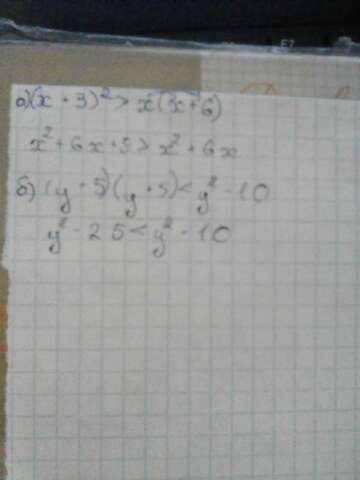 а)(x + 3)² > x(x+6)
x² + 6x + 9 > x² + 6x
б) (y - 5)(y + 5) < y² - 10
y² - 25 < y² - 10